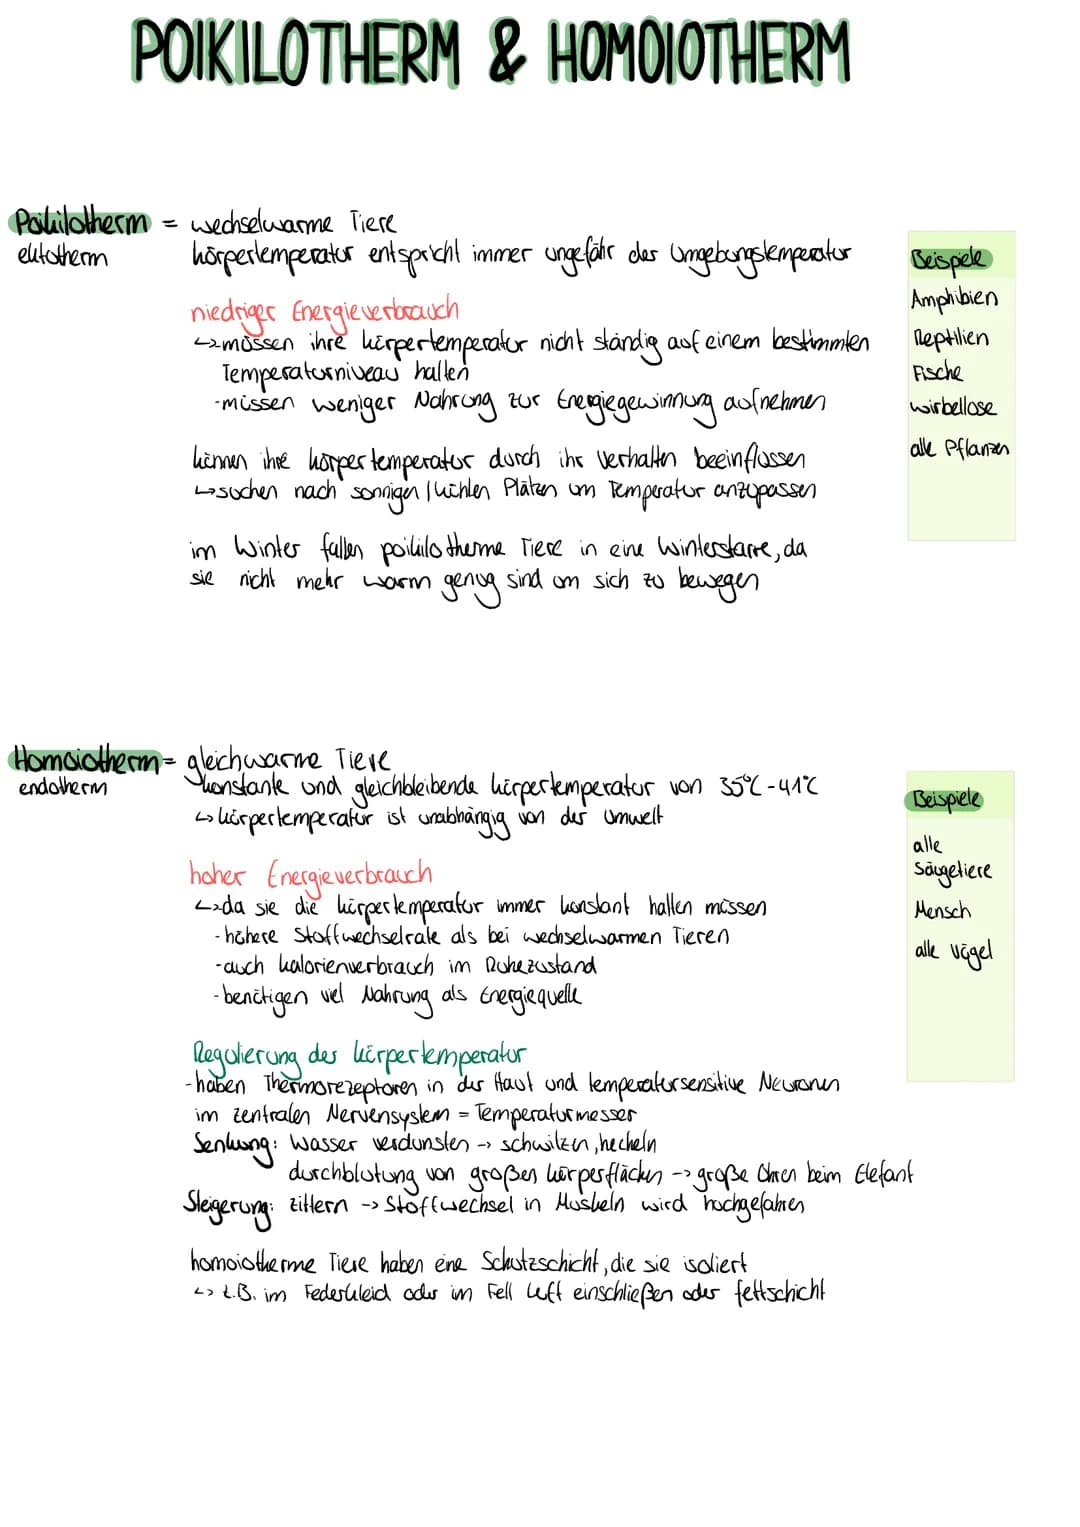 POIKILOTHERM & HOMOIOTHERM
Poikilotherm = wechselwarme Tiere
ektotherm
körpertemperatur entspricht immer ungefähr der Umgebungstemperatur
niedriger Energieverbrauch
↳müssen ihre körpertemperatur nicht ständig auf einem bestimmten
Temperaturniveau halten
-müssen weniger Nahrung zur Energiegewinnung aufnehmen
können ihre körpertemperatur durch ihr verhalten beeinflussen
↳suchen nach sonnigen / kühlen Plätzen um Temperatur anzupassen
im Winter fallen poikilotherme Tiere in eine Winterstarre, da
sie nicht mehr warm genug sind um sich zu bewegen
Beispiele
Amphibien
Reptilien
Fische
wirbellose
alle Pflanzen
Homoiotherm = gleichwarme Tiere
endotherm
konstante und gleichbleibende körpertemperatur von 35°C-41°C
↳ körpertemperatur ist unabhängig von der Umwelt
hoher Energieverbrauch
↳da sie die körpertemperatur immer konstant halten müssen
- höhere Stoffwechselrate als bei wechselwarmen Tieren
-auch kalorienverbrauch im Ruhezustand
-benötigen viel Nahrung als Energiequelle
Regulierung der körpertemperatur
-haben Thermorezeptoren in der Haut und temperatursensitive Neuronen
im zentralen Nervensystem = Temperaturmesser
Senkung: Wasser verdunsten -> schwitzen, hecheln
durchblutung von großen körperflächen -> große Ohren beim Elefant
Steigerung: zittern -> Stoffwechsel in Muskeln wird hochgefahren
homoiotherme Tiere haben eine Schutzschicht, die sie isoliert
↳ z.B. im Federkleid oder im Fell Luft einschließen oder fettschicht
Beispiele
alle
Säugetiere
Mensch
alle Vögel